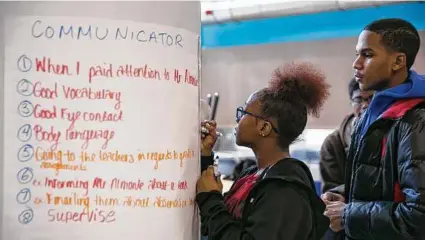 COMMUNICATOR
① When I paid attention to Mr
② Good Vocabulary
③ Good Eye contact
④ Body Language
⑤ Going to the teachers in regards to
⑥ Informing Mr about a
⑦ Emailing them about
⑧ Supervise